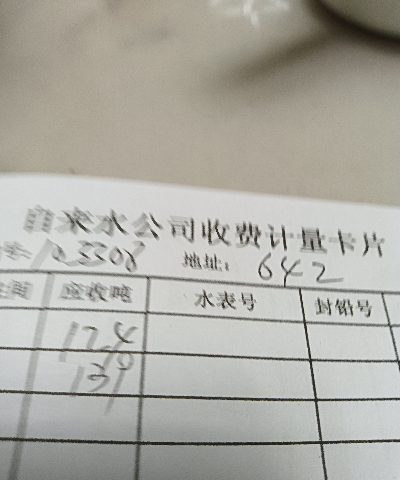 自来水公司收费计量卡片
号: 103308 地址: 642
应收吨 水表号 封铅号
124
139